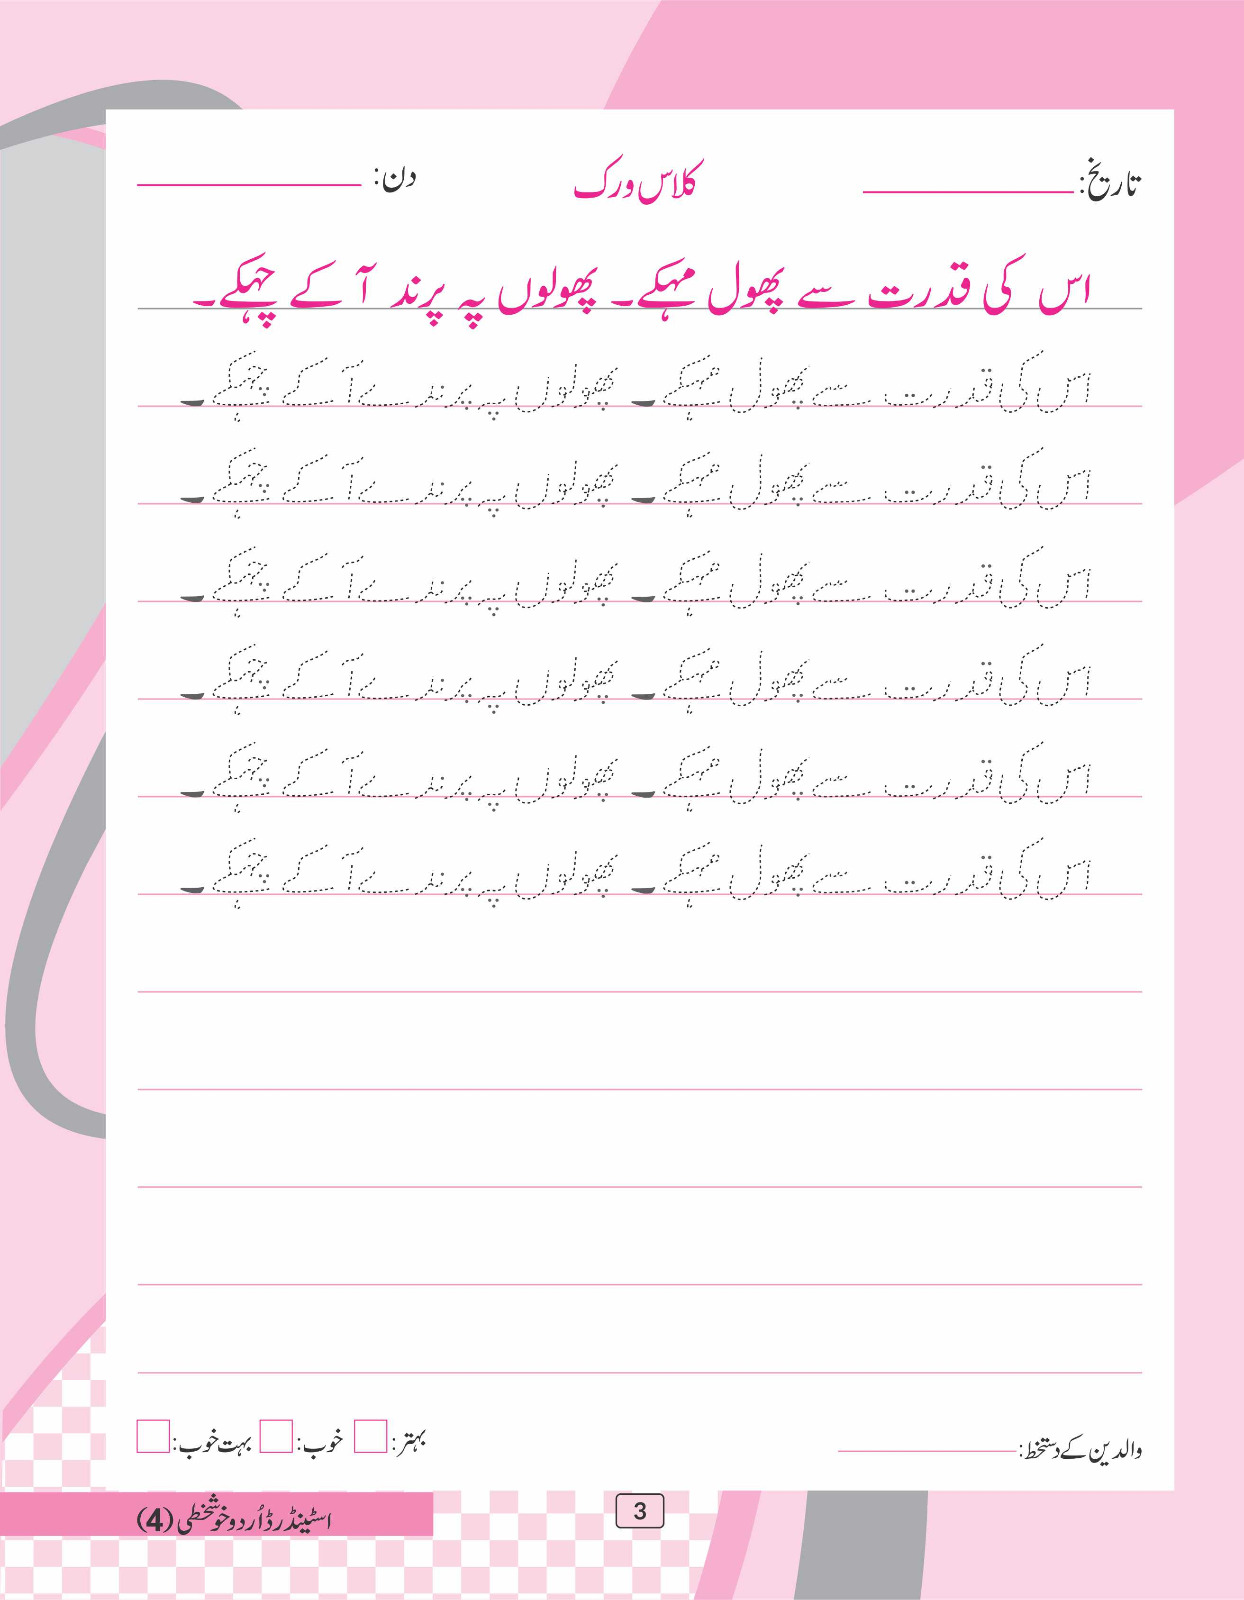 تاریخ: کلاس ورک دن:
اس کی قدرت سے پھول مہکے۔ پھولوں پہ پرند آ کے چہکے۔
اس کی قدرت سے پھول مہکے۔ پھولوں پہ پرندے آ کے چہکے۔
اس کی قدرت سے پھول مہکے۔ پھولوں پہ پرندے آ کے چہکے۔
اس کی قدرت سے پھول مہکے۔ پھولوں پہ پرندے آ کے چہکے۔
اس کی قدرت سے پھول مہکے۔ پھولوں پہ پرندے آ کے چہکے۔
اس کی قدرت سے پھول مہکے۔ پھولوں پہ پرندے آ کے چہکے۔
اس کی قدرت سے پھول مہکے۔ پھولوں پہ پرندے آ کے چہکے۔
والدین کے دستخط: بہتر: خوب: بہت خوب:
3
اسٹینڈرڈ اُردو خوشخطی (4)